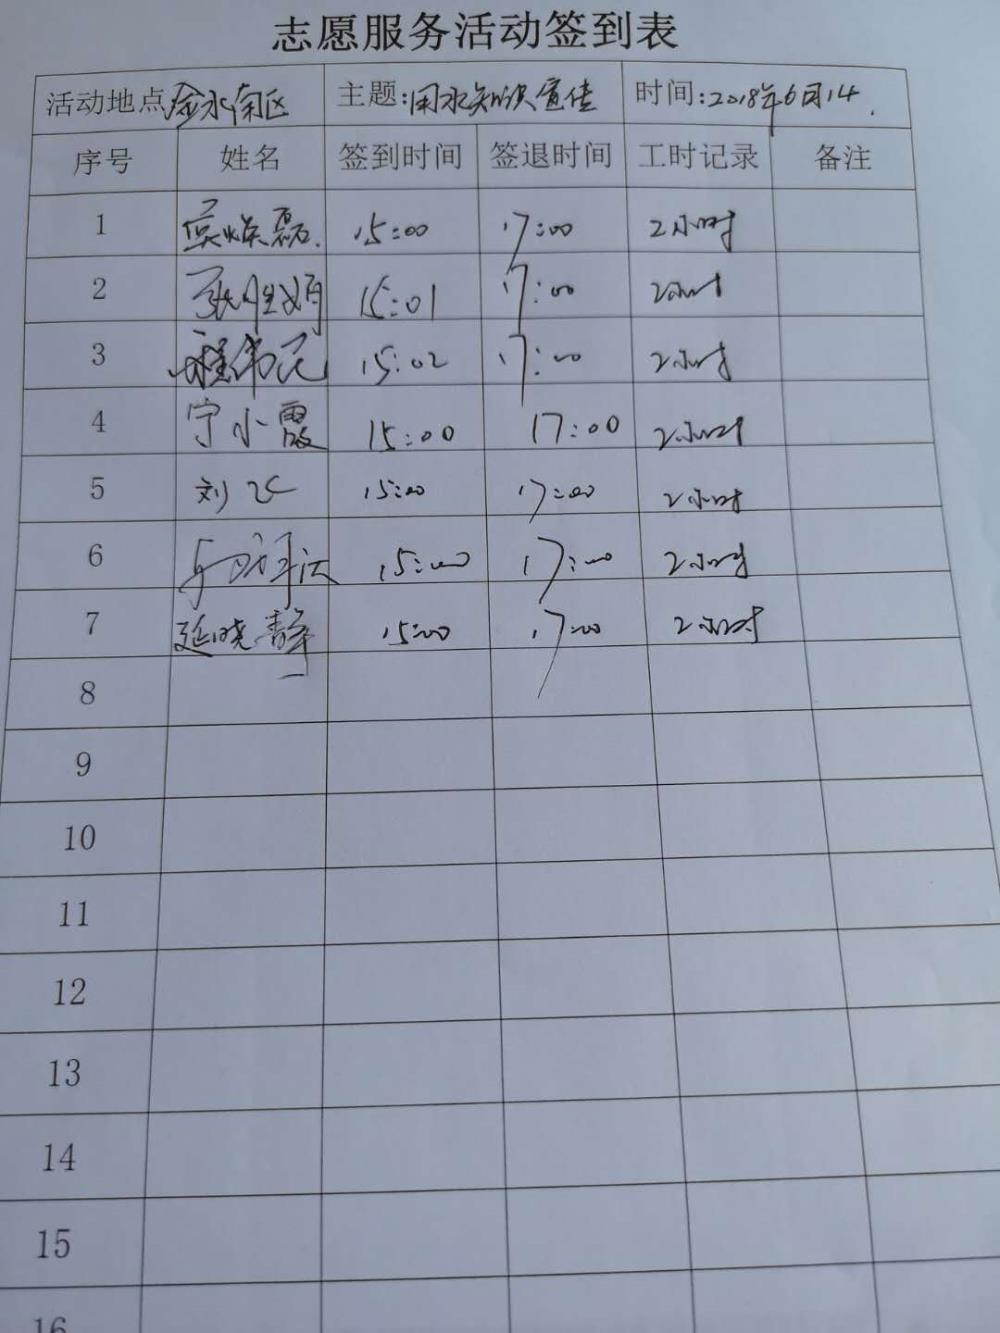 志愿服务活动签到表
活动地点 金水南区 主题:用水知识宣传 时间:2018年6月14.
序号 姓名 签到时间 签退时间 工时记录 备注
1 吴焕磊. 15:00 17:00 2小时
2 15:01 17:00 2小时
3 15:02 17:00 2小时
4 宁小霞 15:00 17:00 2小时
5 刘 15:00 17:00 2小时
6 15:00 17:00 2小时
7 延晓静 15:00 17:00 2小时
8
9
10
11
12
13
14
15
16